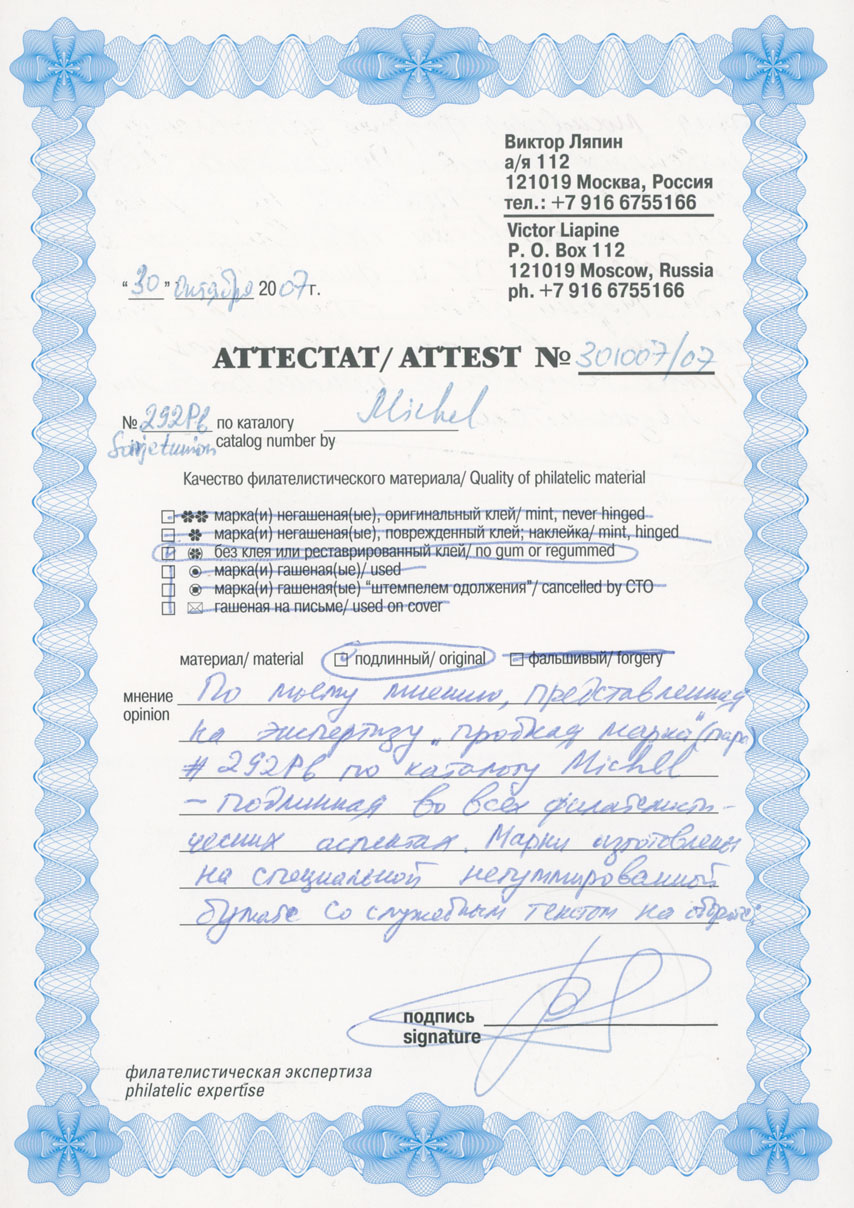 Виктор Ляпин
а/я 112
121019 Москва, Россия
тел.: +7 916 6755166
Victor Liapine
P. O. Box 112
121019 Moscow, Russia
ph. +7 916 6755166
“30” октября 2007 г.
АТТЕСТАТ/ ATTEST № 301007/07
№ 292Pв по каталогу Michel
Sowjetunion catalog number by
Качество филателистического материала/ Quality of philatelic material
марка(и) негашеная(ые), оригинальный клей/ mint, never hinged
марка(и) негашеная(ые), поврежденный клей; наклейка/ mint, hinged
без клея или реставрированный клей/ no gum or regummed
марка(и) гашеная(ые)/ used
марка(и) гашеная(ые) “штемпелем одолжения”/ cancelled by CTO
гашеная на письме/ used on cover
материал/ material подлинный/ original фальшивый/ forgery
мнение По моему мнению, представленная
opinion
на экспертизу „пробная марка“ (пара)
# 292Pв по каталогу Michel
– подлинная во всех филателисти-
ческих аспектах. Марки изготовлены
на специальной негуммированной
бумаге со служебным текстом на обороте
подпись
signature
филателистическая экспертиза
philatelic expertise